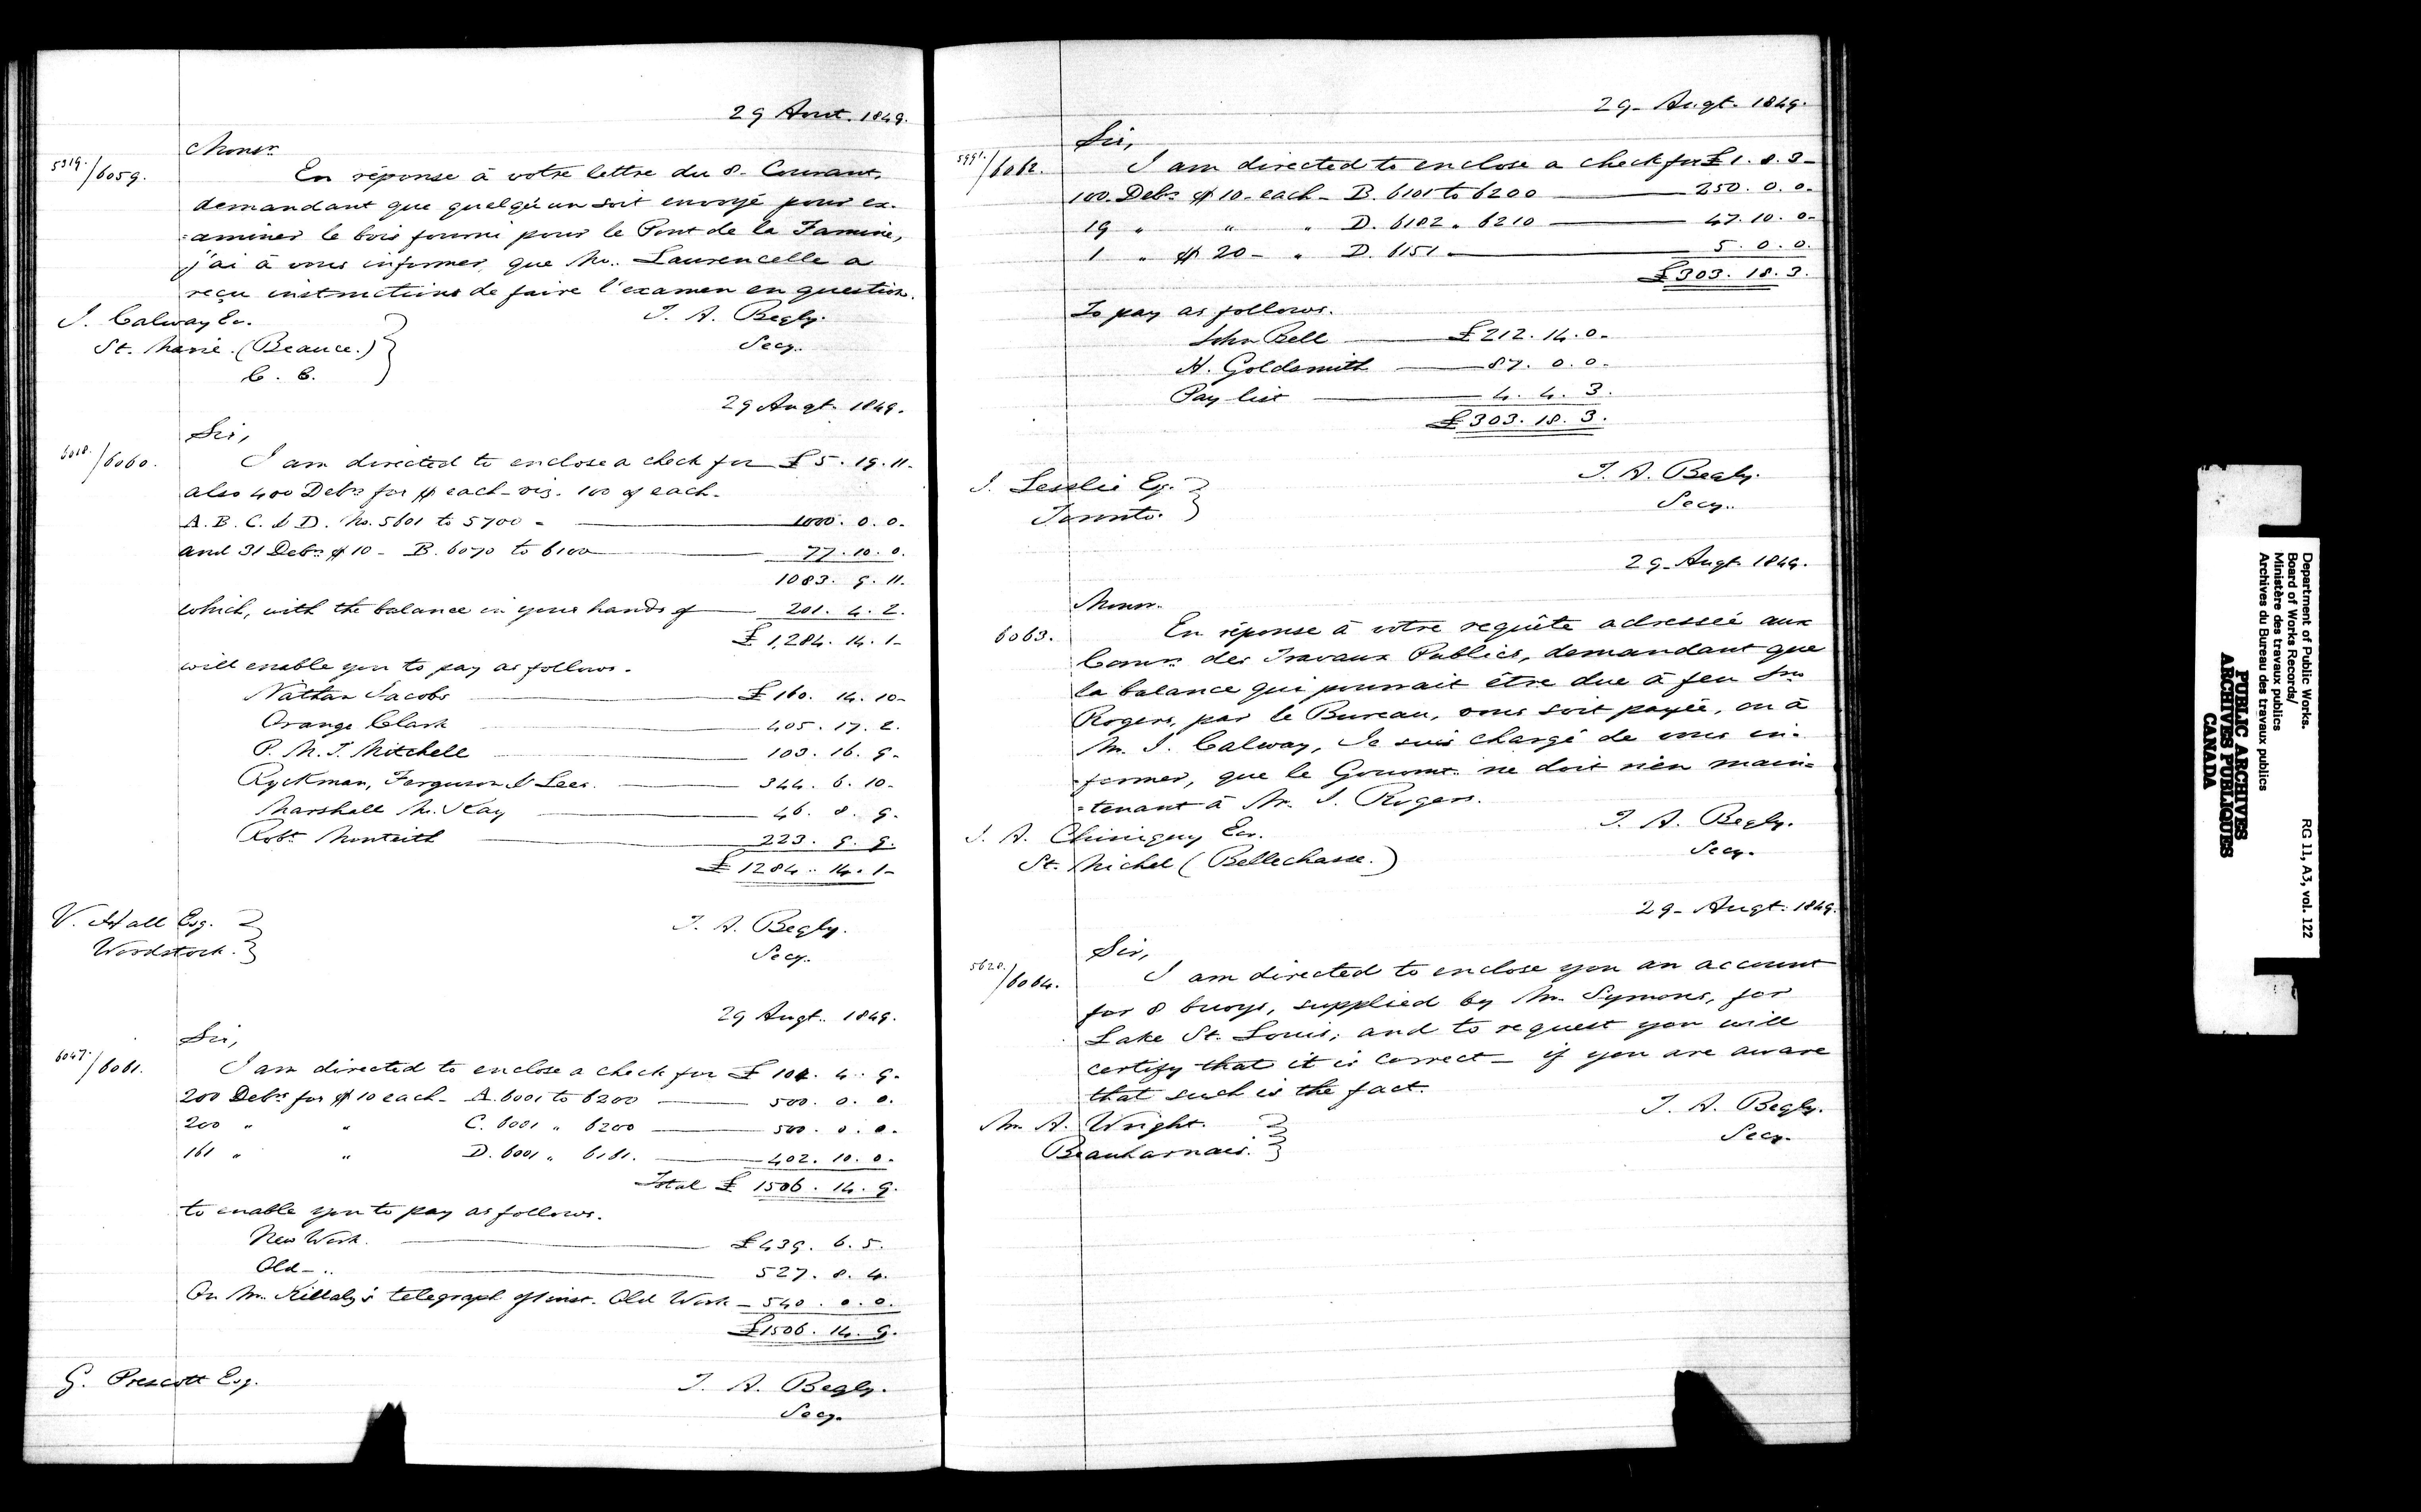 29 Aout. 1849.
Monsr.
5319./6059. En réponse à votre lettre du 8. Courant,
demandant que quelqu'un soit envoyé pour ex-
=aminer le bois fourni pour le Pont de la Famine,
j'ai à vous informer, que Mr. Laurencelle a
reçu instructions de faire l'examen en question.
J. Calway Er.
St. Marie. (Beauce.)
C. E.
T. A. Begly.
Secy.
29 Augt. 1849.
Sir,
6018./6060. I am directed to enclose a check for £5.19.11.
also 400 Debrs for $ each - viz. 100 of each -
A. B. C. & D. No. 5601 to 5700 - 1000. 0. 0.
and 31 Debrs $10 - B. 6070 to 6100 77. 10. 0.
1083. 9. 11.
which, with the balance in your hands of 201. 4. 2.
£1,284. 14. 1-
will enable you to pay as follows.
Nathan Jacobs £160. 14. 10-
Orange Clark 405. 17. 2.
P. M. J. Mitchell 103. 16. 9-
Ryckman, Ferguson & Lees. 344. 6. 10-
Marshall McKay 46. 8. 9.
Robt. Monteith 223. 9. 9.
£1284. 14. 1-
V. Hall Esq.
Woodstock.
T. A. Begly.
Secy.
29 Augt. 1849.
Sir,
6047./6061. I am directed to enclose a check for £104. 4. 9.
200 Debrs for $10 each - A. 6001 to 6200 500. 0. 0.
200 " " C. 6001 " 6200 500. 0. 0.
161 " " D. 6001 " 6161. 402. 10. 0.
Total £1506. 14. 9.
to enable you to pay as follows.
New Work. £439. 6. 5.
Old - .. 527. 8. 4.
On Mr. Killaly's telegraph of inst. Old Work - 540. 0. 0.
£1506. 14. 9.
G. Prescott Esq.
T. A. Begly.
Secy.
29- Augt. 1849.
Sir,
5991./6062. I am directed to enclose a check for £1. 8. 3-
100 Debrs $10. each - B. 6101 to 6200 250. 0. 0.
19 " " " D. 6182 " 6210 47. 10. 0-
1 " $20 - " D. 6151 5. 0. 0.
£303. 18. 3.
To pay as follows.
John Bell £212. 14. 0-
H. Goldsmith 87. 0. 0.
Pay list 4. 4. 3.
£303. 18. 3.
J. Lesslie Esq.
Toronto.
T. A. Begly.
Secy.
29- Augt. 1849.
Monsr.
6063. En réponse à votre requête adressée aux
Comrs. des Travaux Publics, demandant que
la balance qui pourrait être due à feu Jno
Rogers, par le Bureau, vous soit payée, ou à
Mr. J. Calway, Je suis chargé de vous in-
=former, que le Gouvmt. ne doit rien main=
=tenant à Mr. J. Rogers.
J. A. Chiniquy Er.
St. Michel (Bellechasse.)
T. A. Begly.
Secy.
29- Augt. 1849.
Sir,
5620./6064. I am directed to enclose you an account
for 8 buoys, supplied by Mr. Symons, for
Lake St. Louis; and to request you will
certify that it is correct - if you are aware
that such is the fact.
Mr. A. Wright.
Beauharnais.
T. A. Begly.
Secy.
Department of Public Works. RG 11, A3, vol. 122
Board of Works Records/
Ministère des travaux publics
Archives du Bureau des travaux publics
PUBLIC ARCHIVES
ARCHIVES PUBLIQUES
CANADA